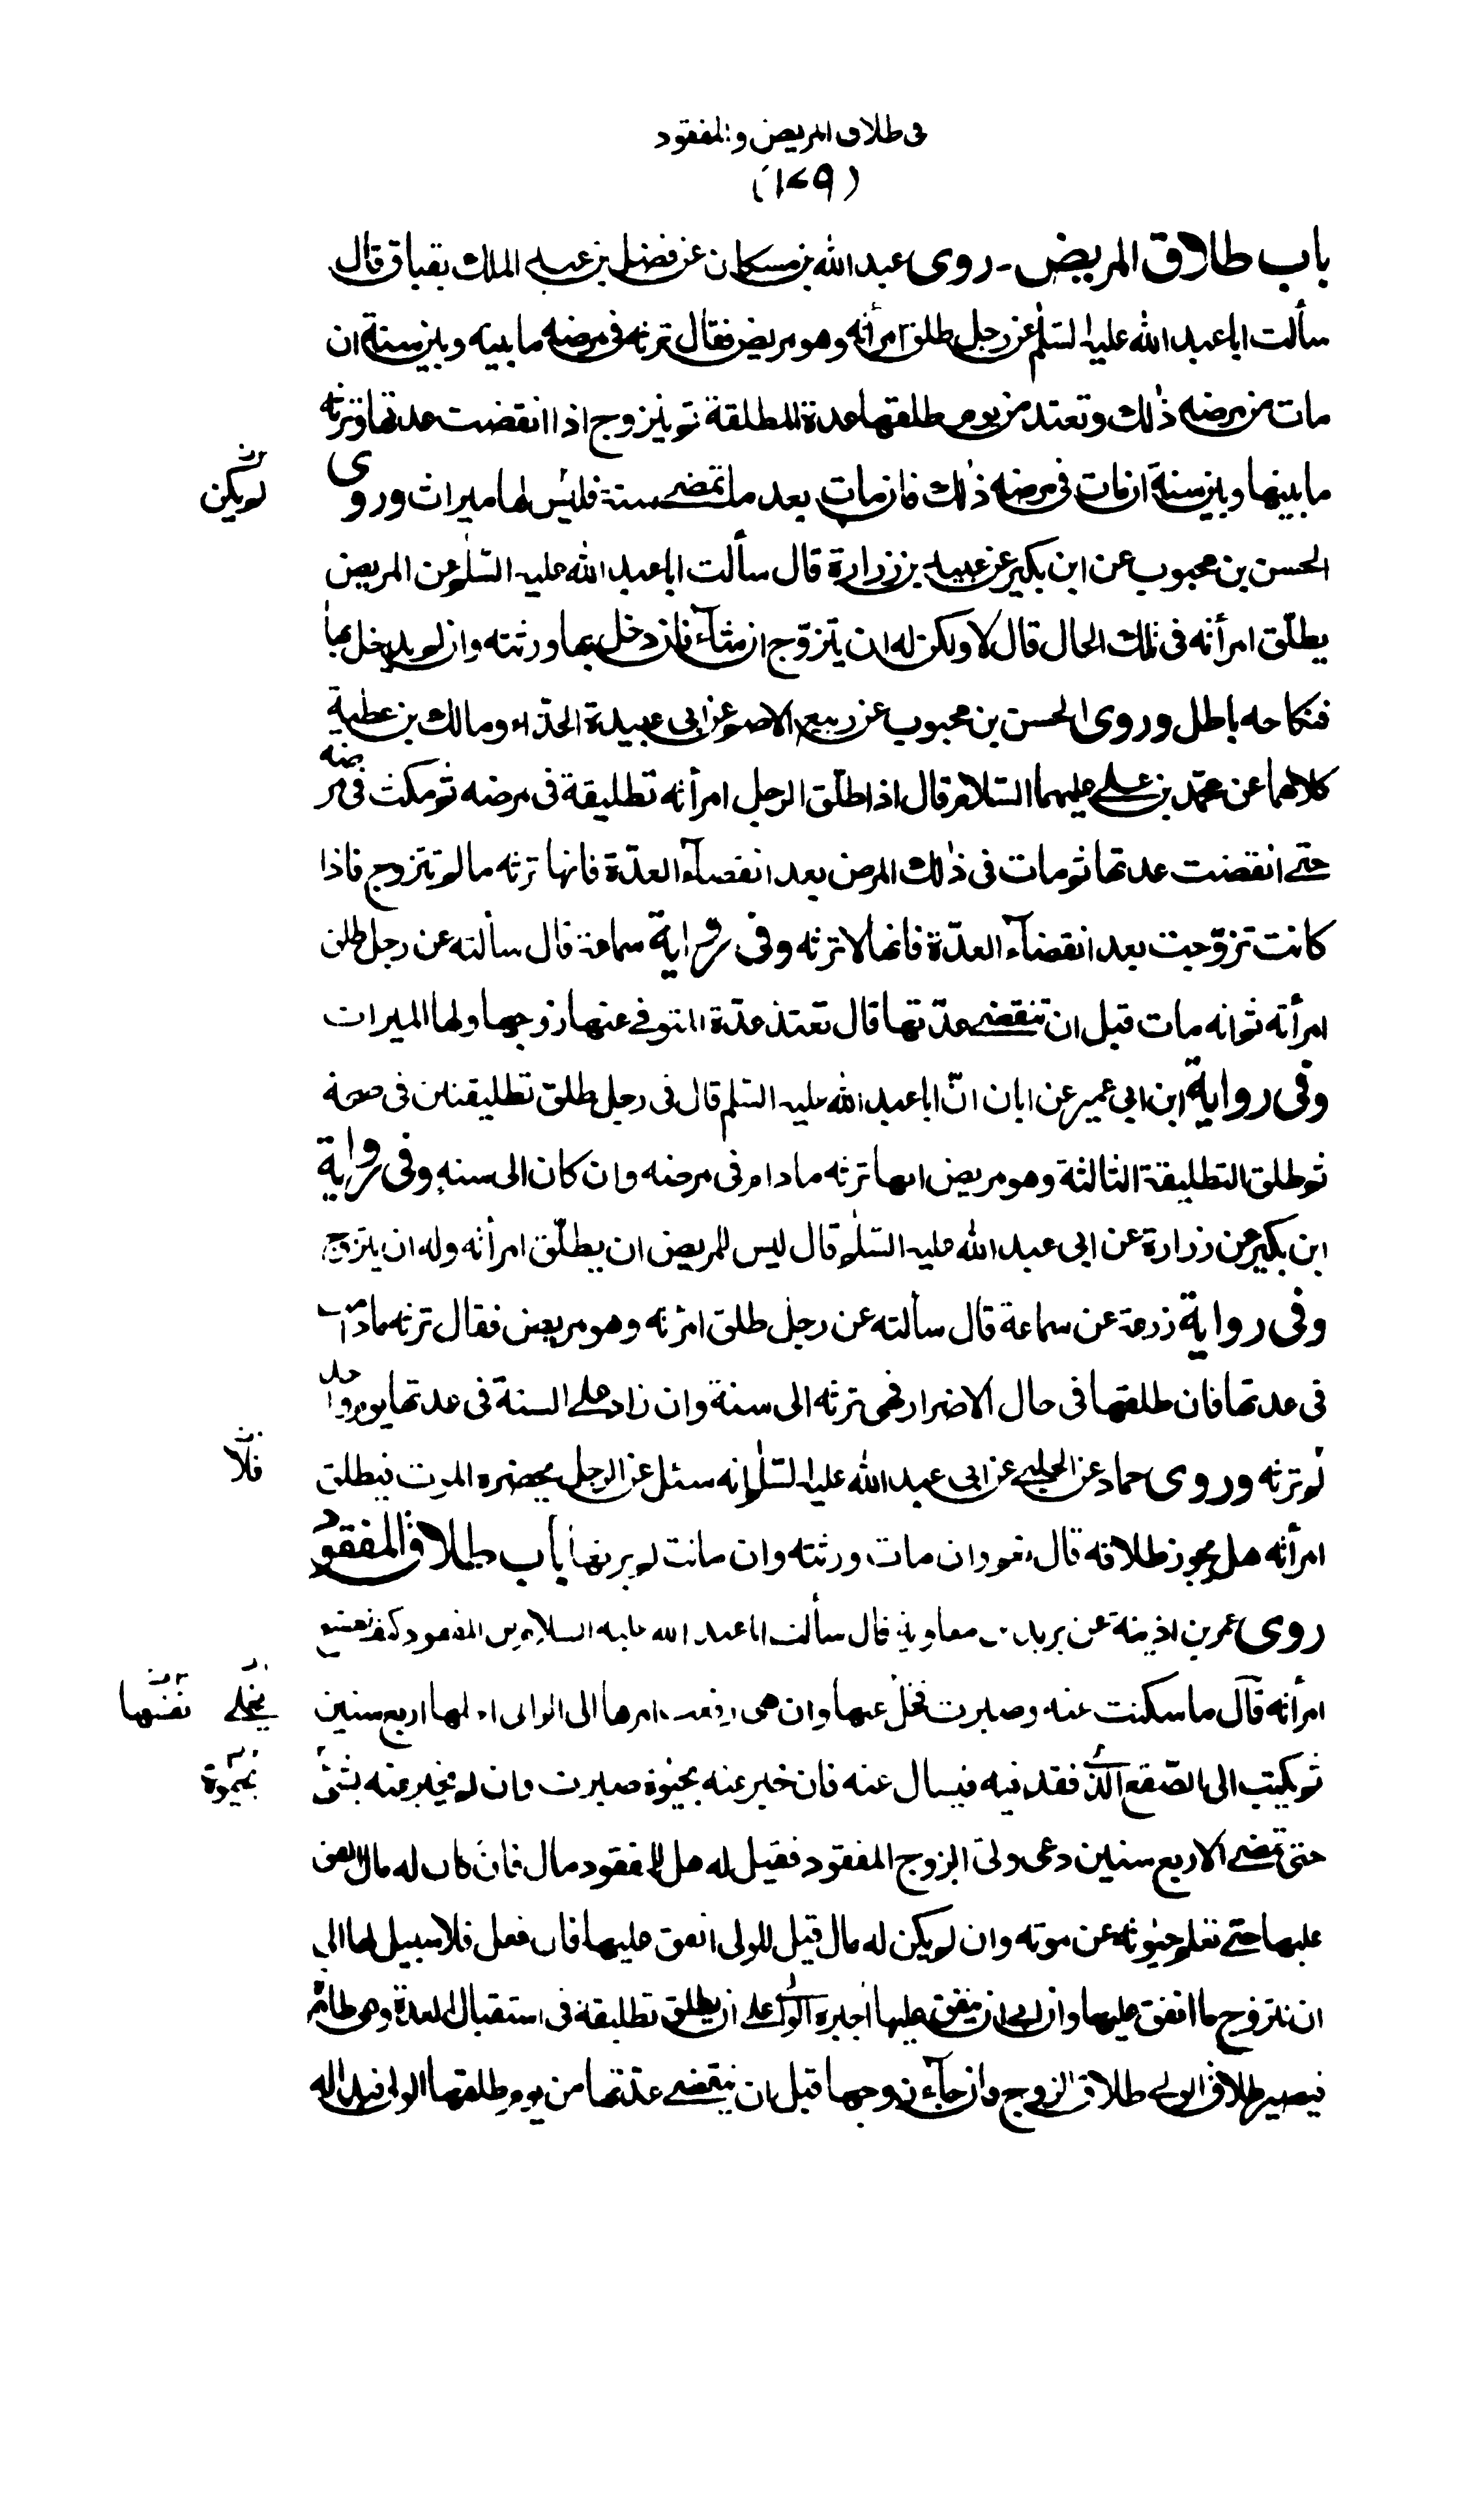 فى طلاق المريض و المفقود
(١٧٩)
باب طلاق المريض ـ روى عبد الله بن مسكان عن فضل بن عبد الملك بقباق قال
سألت ابا عبد الله عليه السلم عن رجل طلق امرأته وهو مريض فقال ترثه فى مرضه ما بينه وبين سنة ان
مات من مرضه ذلك وتعتد من يوم طلقها عدة المطلقة ثم يتزوج اذا انقضت عدتها وترثه
ما بينها وبين سنة ان مات فى مرضه ذلك فان مات بعد ما تمضى سنة فليس لها ميراث وروى
لم يكن
الحسن بن محبوب عن ابن بكير عن عبيد بن زرارة قال سألت ابا عبد الله عليه السلم عن المريض
يطلّق امرأته فى تلك الحال قال لا ولكن له ان يتزوّج ان شآء فان دخل بها ورثته وان لم يدخل بها
فنكاحه باطل وروى الحسن بن محبوب عن ربيع الاصم عن ابى عبيدة الحذاء ومالك بن عطية
كلاهما عن محمّد بن على عليهما السّلام قال اذا طلّق الرجل امرأته تطليقة فى مرضه ثم مكث فى مرضه
حتى انقضت عدتها ثم مات فى ذلك المرض بعد انقضآء العدّة فانها ترثه ما لم تتزوج فاذا
كانت تزوّجت بعد انقضآء العدّة فانها لا ترثه وفى رواية سماعة قال سألته عن رجل طلق
امرأته ثم انه مات قبل ان تنقضى عدّتها قال تعتد عدّة المتوفى عنها زوجها ولها الميراث
وفى رواية ابن ابى عمير عن ابان انّ ابا عبد الله عليه السلم قال فى رجل طلق تطليقتين فى صحة
ثم طلق التطليقة الثالثة وهو مريض انها ترثه ما دام فى مرضه وان كان الى سنة وفى رواية
ابن بكير عن زرارة عن ابى عبد الله عليه السّلم قال ليس للمريض ان يطلّق امرأته وله ان يتزوج
وفى رواية زرعة عن سماعة قال سألته عن رجل طلق امرئته وهو مريض فقال ترثه مادامت
فى عدتها فان طلقها فى حال الاضرار فهى ترثه الى سنة وان زاد على السنة فى عدتها يوم واحد
لم ترثه وروى حماد عن الحلبى عن ابى عبد الله عليه السلم انه سئل عن الرجل يحضره الموت فيطلق
فلا
امرأته هل يجوز طلاقه قال نعم وان مات ورثته وان ماتت لم يرثها باب طلاق المفقود
روى عمر بن اذينة عن بريد بن معاوية قال سألت ابا عبد الله عليه السلام عن المفقود كيف تصنع
امرأته قال ما سكتت عنه وصبرت تخلّ عنها وان هى رفعت امرها الى الوالى اجلها اربع سنين
يخلى
ثم يكتب الى الصّقع الذى فقد فيه فيسال عنه فان خبر عنه بحيوة صبرت وان لم يخبر عنه بشئ
بحيوة
حتى تمضى الاربع سنين دعى ولىّ الزوج المفقود فقيل له هل للمفقود مال فان كان له مال انفق
عليها حتى تعلم حيوته عن موته وان لم يكن له مال قيل للولى انفق عليها فان فعل فلا سبيل لها الى
ان تتزوج ما انفق عليها وان ابى ان ينفق عليها اجبره الوالى على ان يطلق تطليقة فى استقبال العدة وهى طاهر
فيصير طلاق الولى طلاق الزوج وان جآء زوجها قبل ان ينقضى عدّتها من يوم طلقها الوالى